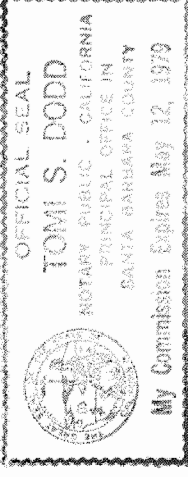 OFFICIAL SEAL
TOMI S. DODD
NOTARY PUBLIC - CALIFORNIA
PRINCIPAL OFFICE IN
SANTA BARBARA COUNTY
My Commission Expires May 12, 1979